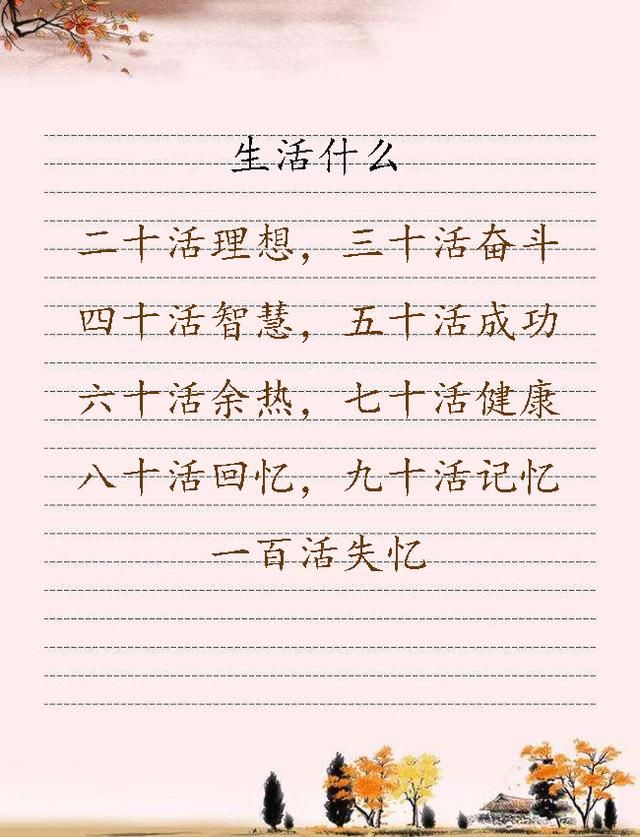 生活什么
二十活理想，三十活奋斗
四十活智慧，五十活成功
六十活余热，七十活健康
八十活回忆，九十活记忆
一百活失忆